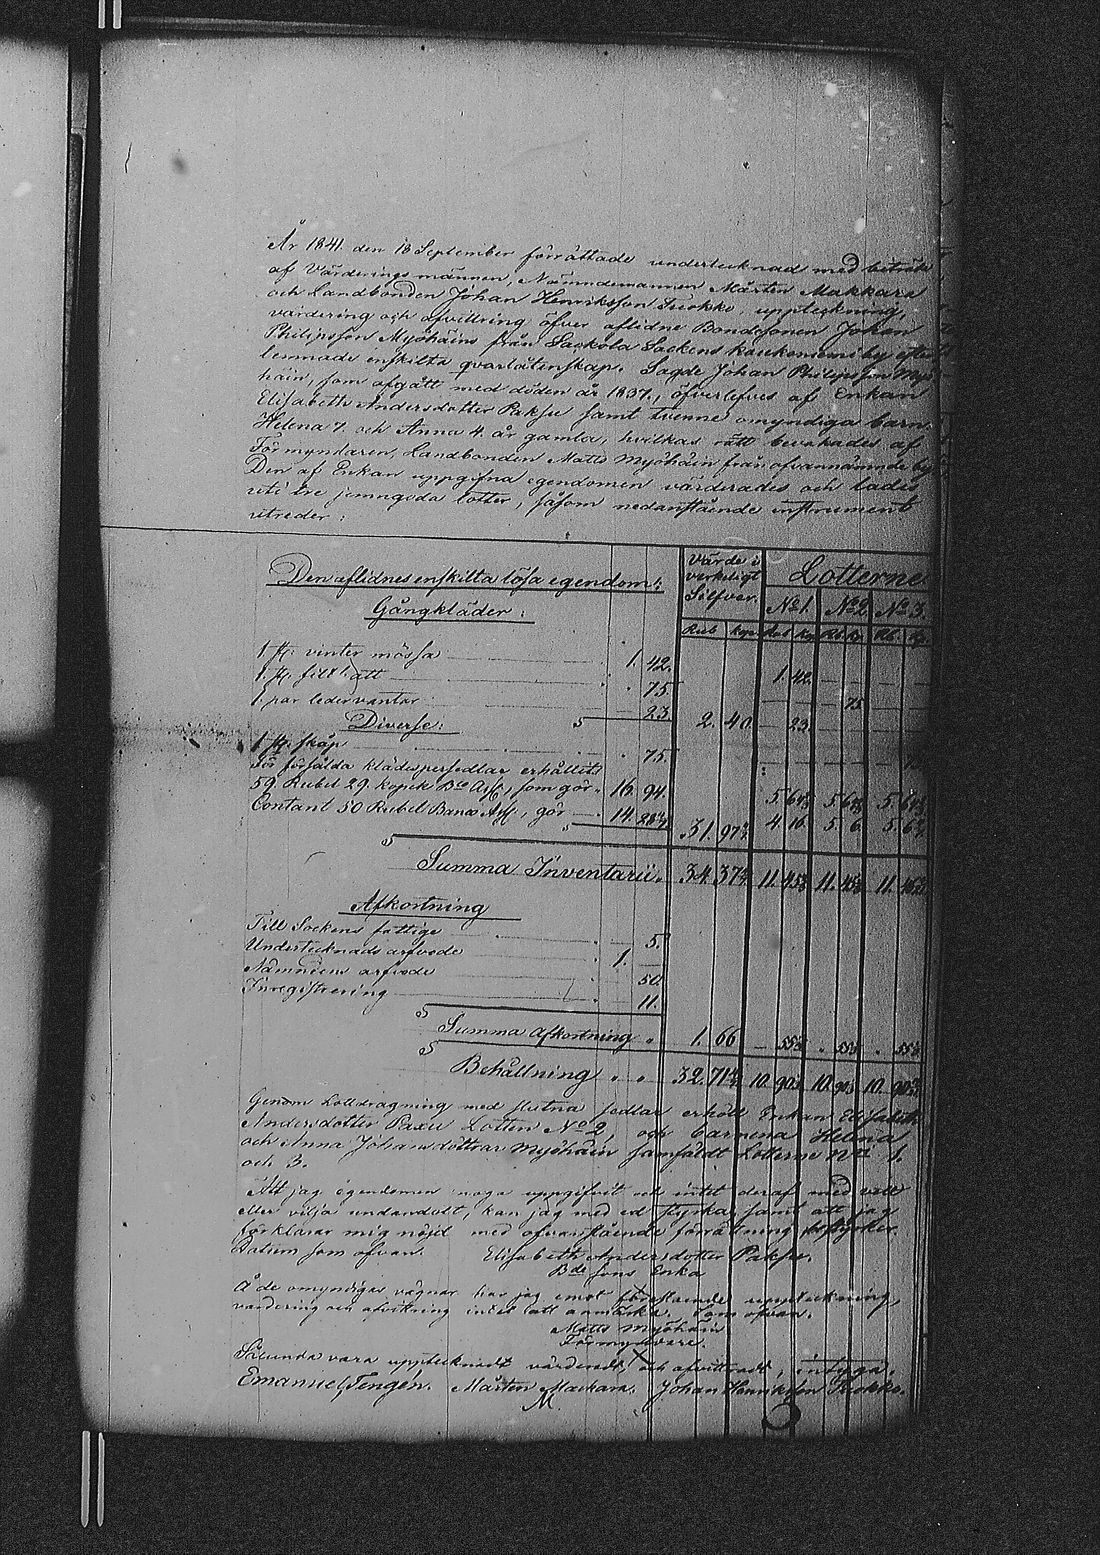 År 1841 den 18 September förrättade undertecknad med biträde
af Värderingsmännen, Nämndemannen Mårten Makkara
och Landbonden Johan Henriksson Suokko, uppteckning,
värdering och afvittring öfver aflidne Bondesonen Johan
Philipsson Myöhäins från Sackola Sockens by efter
lemnade enskilta qvarlåtenskap. Sagde Johan Philipsson Myö
häin, som afgått med döden år 1837, öfverlefves af Enkan
Elisabeth Andersdotter Paksu samt tvenne omyndiga barn,
Helena 7. och Anna 4. år gamla, hvilkas rätt bevakades af
Förmyndaren, Landbonden Matts Myöhäin från ofvannämnde by
Den af Enkan uppgifna egendomen värderades och lades
uti tre jemngoda lotter, såsom nedanstående instrument
utreder:
Värde i verkeligt Silfver. Lotterne
Den aflidnes enskilta lösa egendom:
Gångkläder: No 1. No 2. No 3.
Rub kop Rub kop Rb. kp. Rb. kp.
1 st. vinter mössa 1. 42. 1. 42.
1 st. filt hatt 75. 75
1 par ledervantar 23 2. 40. 23.
Diverse:
1 st. skåp 75.
För försålda klädespersedlar erhållits
59. Rubel 29. kopek Bco Ass, som gör 16. 94.
Contant 50 Rubel Banco Ass, gör 14. 31. 97 4. 16. 5. 6. 5. 6
Summa Inventarii. 34. 37 11. 45 11. 45 11.
Afkortning
Till Sockens fattige 5.
Undertecknads arfvode 1.
Nämndens arfvode 50.
Inregistrering 11.
Summa Afkortning 1. 66 55 55 55
Behållning 32. 71 10. 90 10. 90 10. 90
Genom Lottdragning med slutna sedlar erhöll Enkan Elisabeth
Andersdotter Paxu Lotten No 2, och barnena Helena
och Anna Johansdöttrar Myöhäin samfäldt Lotterne No 1.
och 3.
Att jag egendomen noga uppgifvit och intet deraf med vett
eller vilja undandolt, kan jag med ed styrka, samt att jag
förklarar mig nöjd med ofvanstående förrättning
Datum som ofvan. Elisabeth Andersdotter Paksu.
Bde sons Enka
Å de omyndigas vägnar har jag emot förestående uppteckning,
värdering och afvittring intet att anmärka. som ofvan.
Matts Myöhäin
Förmyndare.
Sålunda vara upptecknadt, värderadt, och afvittradt, intyga;
Emanuel Tengén. Mårten Mackara. Johan Henriksson Suokko.
M